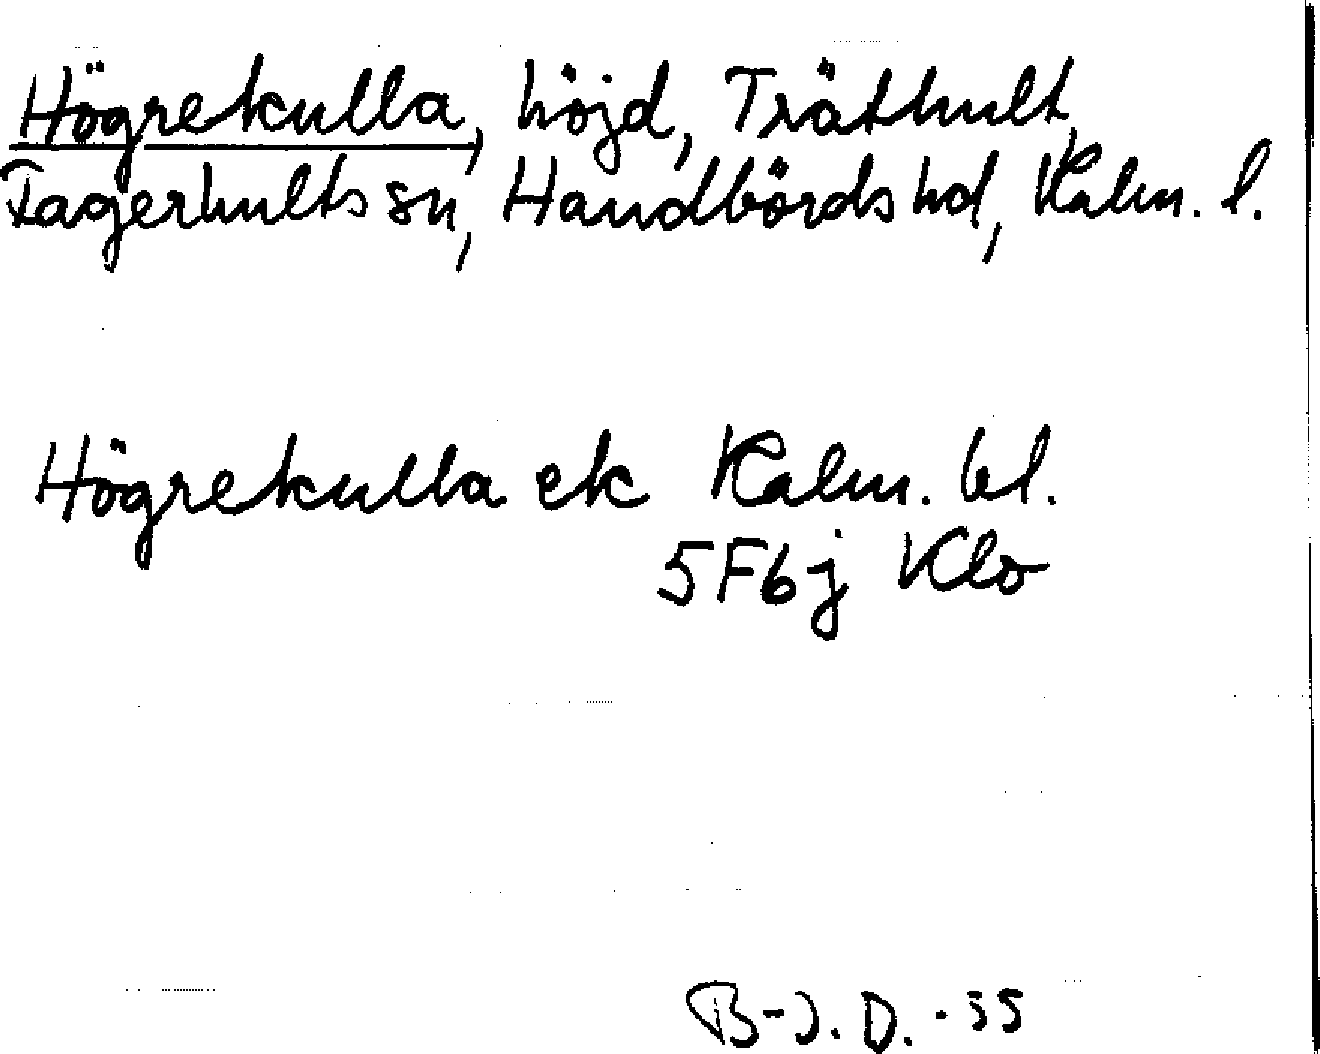 Högrekulla, höjd, Träthult,
Fagerhults sn, Handbörds hd, Kalm. l.
Högrekulla ek Kalm. bl.
5F6j Klo
B-J. D. -55